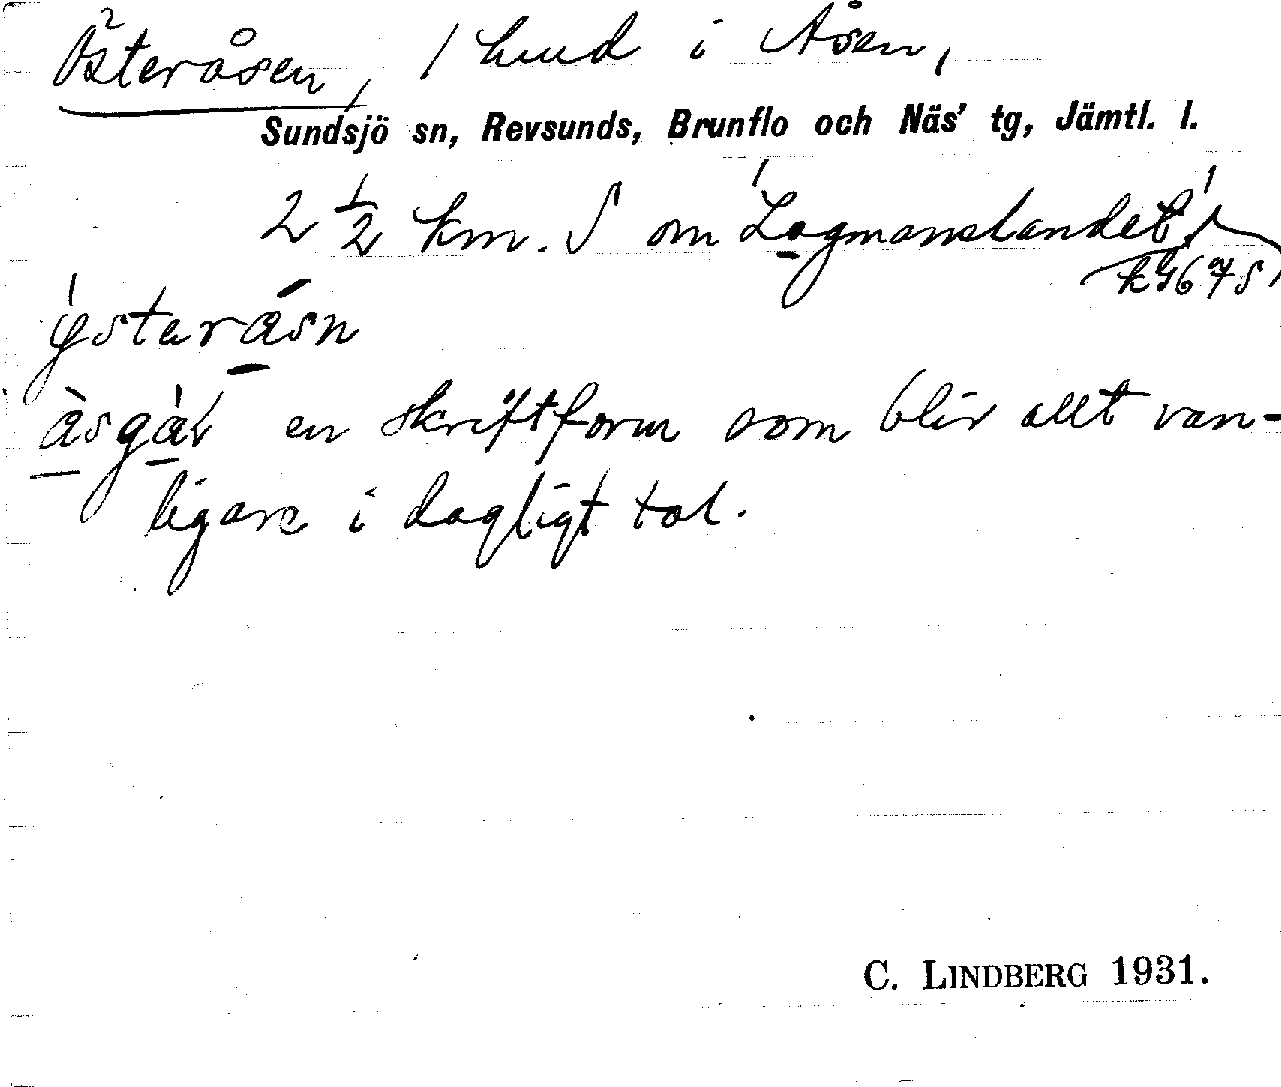 Österåsen, 1 hmd i Åsen,
Sundsjö sn, Revsunds, Brunflo och Näs' tg, Jämtl. l.
2 1/2 km. S om "Lagmanslandet"
k967S
ystaråsn
åsgål en skriftform som blir allt van-
ligare i dagligt tal.
C. LINDBERG 1931.